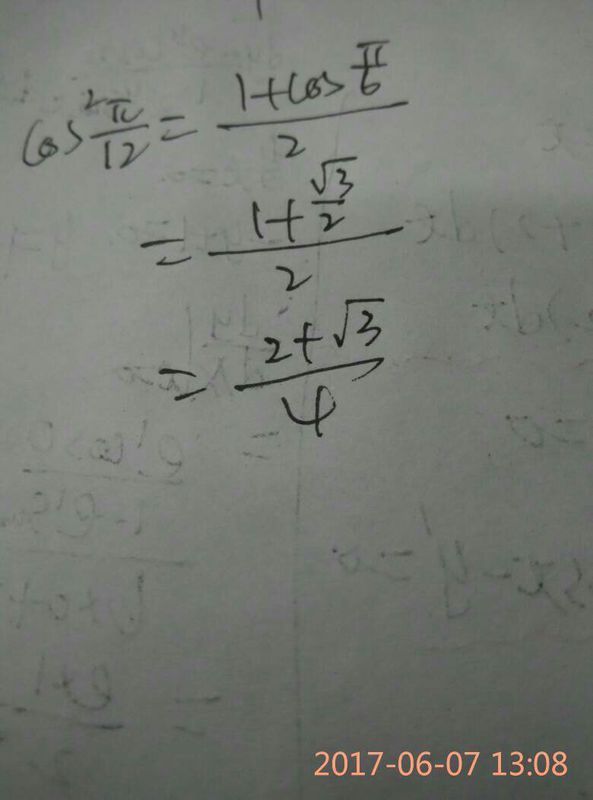 cos²π/12 = (1+cos π/6)/2
= (1+√3/2)/2
= (2+√3)/4
2017-06-07 13:08